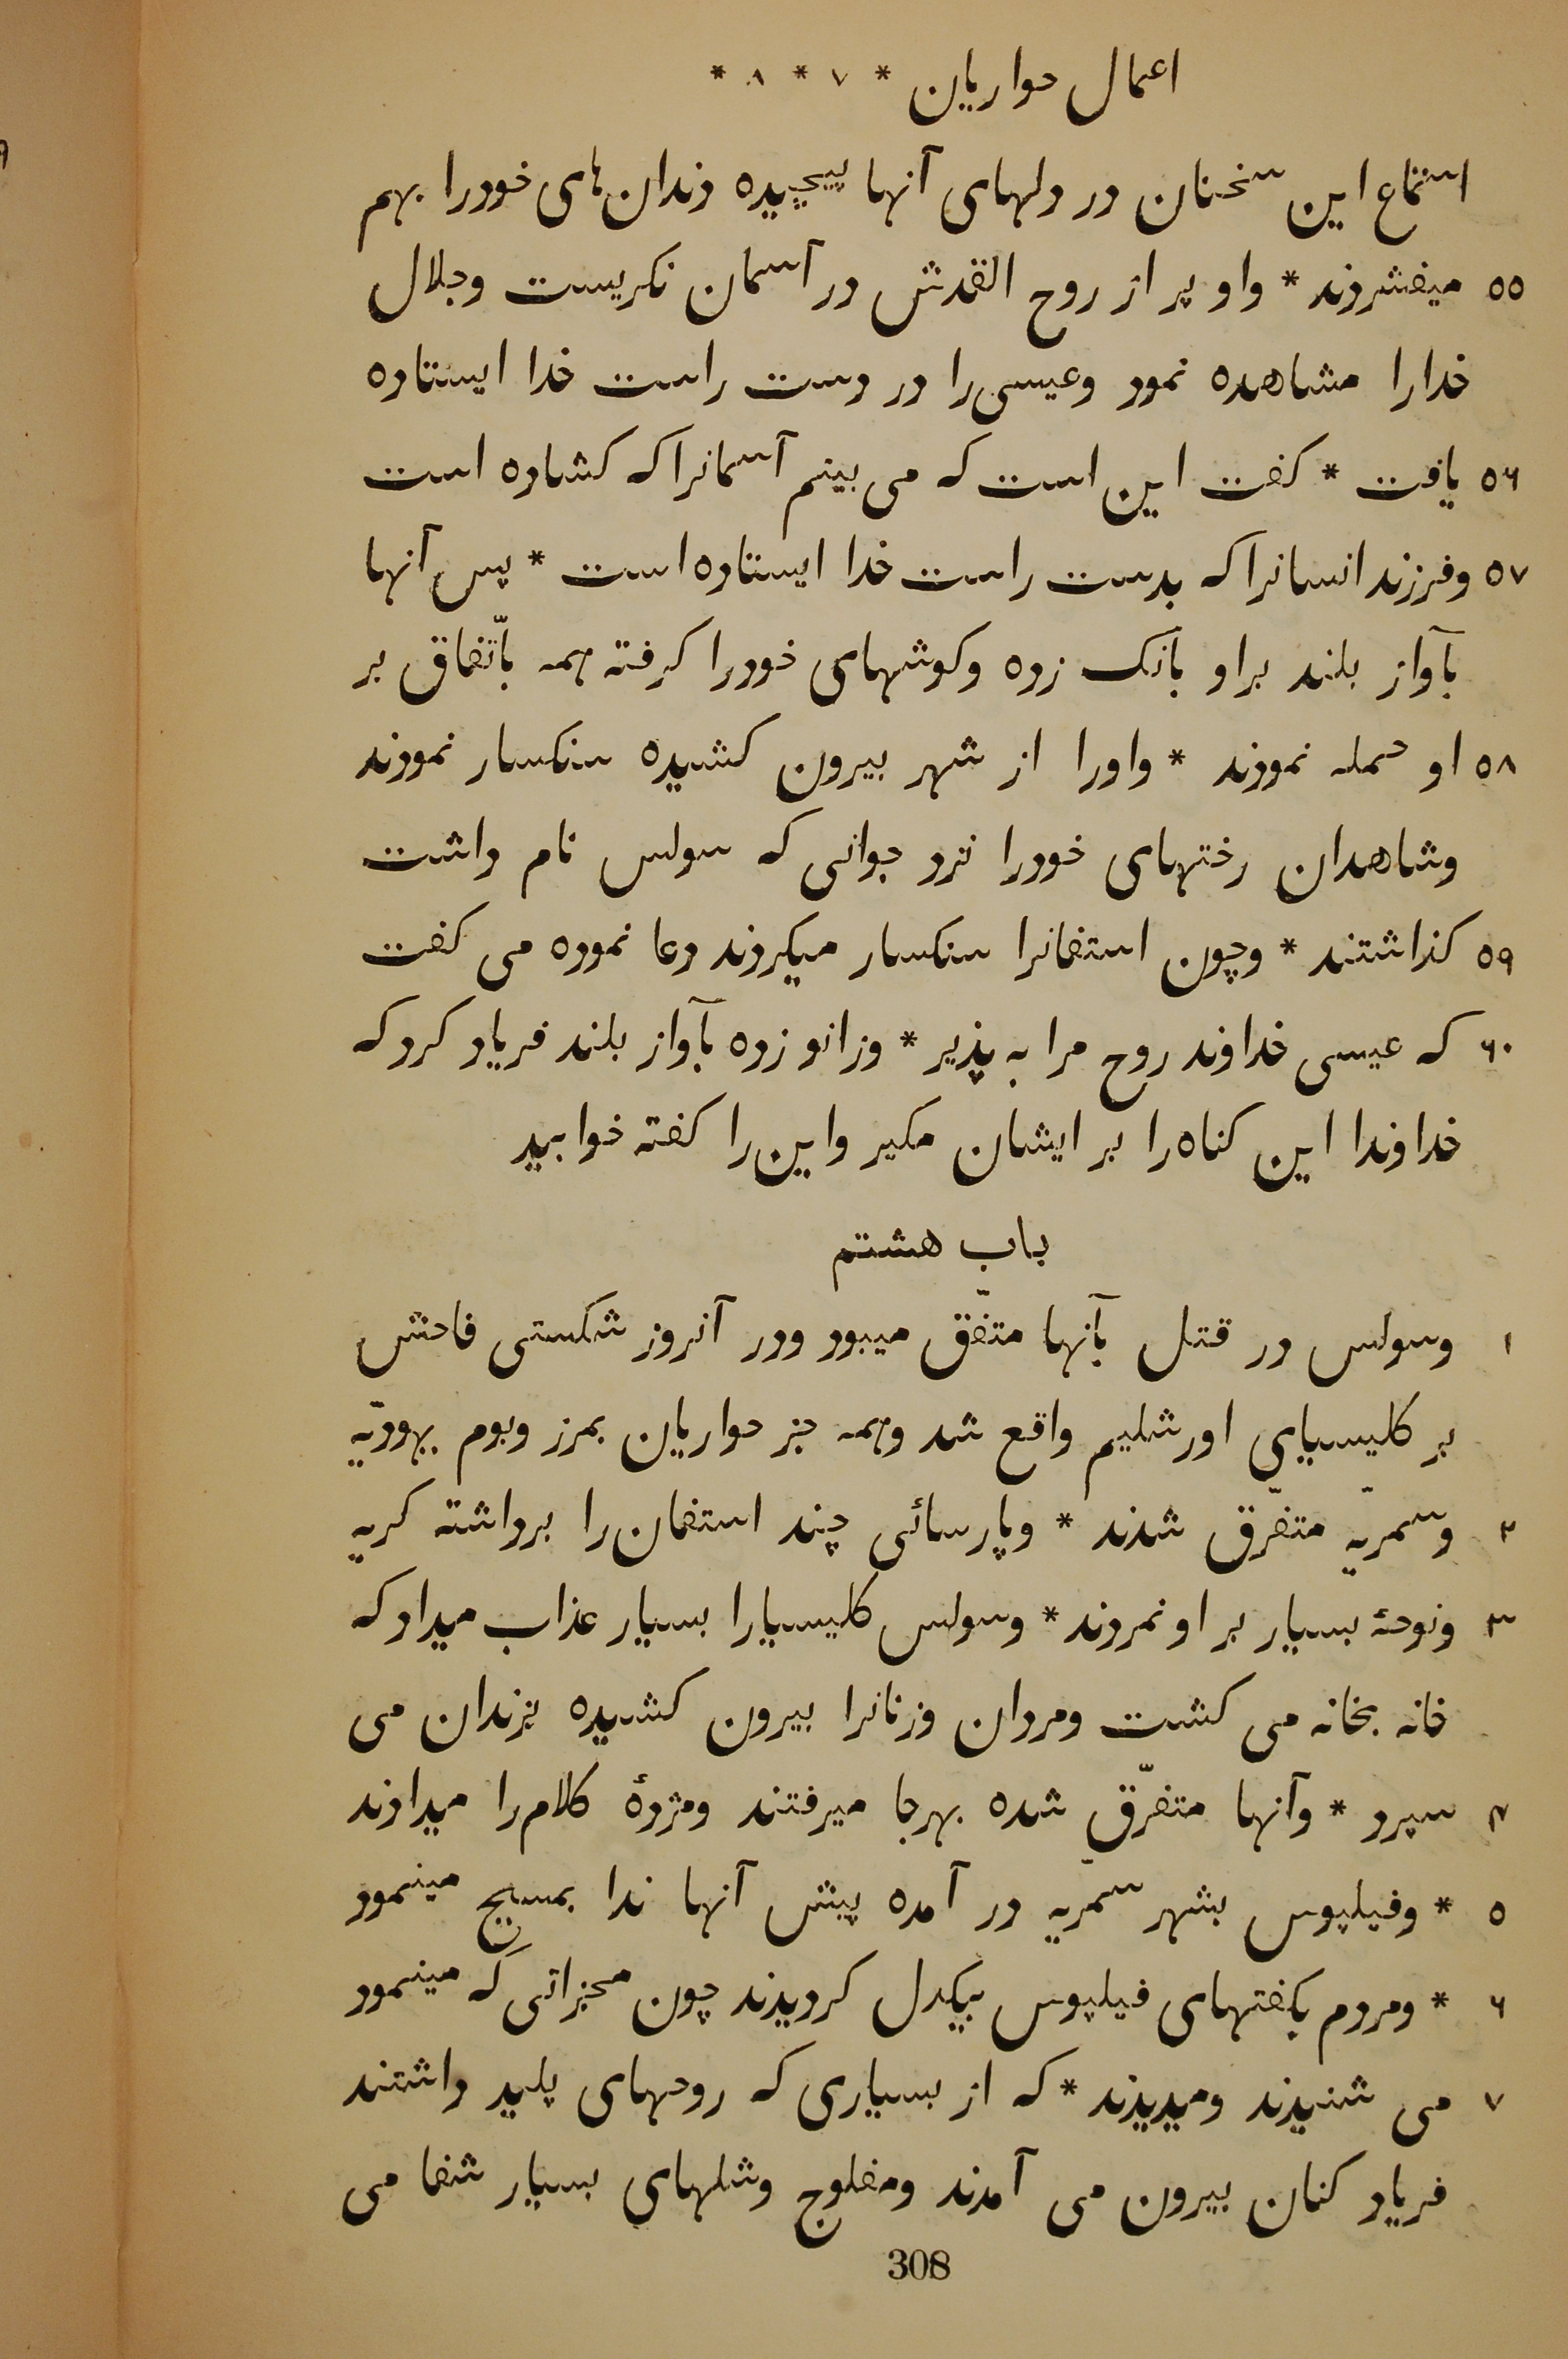 اعمال حواریان * ۷ * ۸ *
استماع این سخنان در دلهای آنها پیچیده دندان‌های خودرا بهم
۵۵ میفشردند * واو پر از روح القدش در آسمان نکریست وجلال
خدارا مشاهده نمود وعیسی‌را در دست راست خدا ایستاده
۵۶ یافت * کفت این است که می بینم آسمانرا که کشاده است
۵۷ وفرزند انسانرا که بدست راست خدا ایستاده است * پس آنها
بآواز بلند براو بانک زده وکوشهای خودرا کرفته همه باتّفاق بر
۵۸ او حمله نمودند * واورا از شهر بیرون کشیده سنکسار نمودند
وشاهدان رختهای خودرا نزد جوانی که سولس نام داشت
۵۹ کذاشتند * وچون استفانرا سنکسار میکردند دعا نموده می کفت
۶۰ که عیسی خداوند روح مرا به پذیر * وزانو زده بآواز بلند فریاد کرد که
خداوندا این کناه‌را بر ایشان مکیر واین‌را کفته خوابید
باب هشتم
۱ وسولس در قتل بآنها متّفق میبود ودر آنروز شکستی فاحش
بر کلیسیای اورشلیم واقع شد وهمه جز حواریان بمرز وبوم یهودیّه
۲ وسمریه متفرّق شدند * وپارسائی چند استفان‌را برداشته کریه
۳ ونوحهٔ بسیار بر او نمردند * وسولس کلیسیارا بسیار عذاب میداد که
خانه بخانه می کشت ومردان وزنانرا بیرون کشیده بزندان می
۴ سپرد * وآنها متفرّق شده بهرجا میرفتند ومژدهٔ کلام‌را میدادند
۵ * وفیلپوس بشهر سمریّه در آمده پیش آنها ندا بمسیح مینمود
۶ * ومردم بکفتهای فیلپوس بیکدل کردیدند چون معجزاتی که مینمود
۷ می شنیدند ومیدیدند * که از بسیاری که روحهای پلید داشتند
فریاد کنان بیرون می آمدند ومفلوج وشلهای بسیار شفا می
308